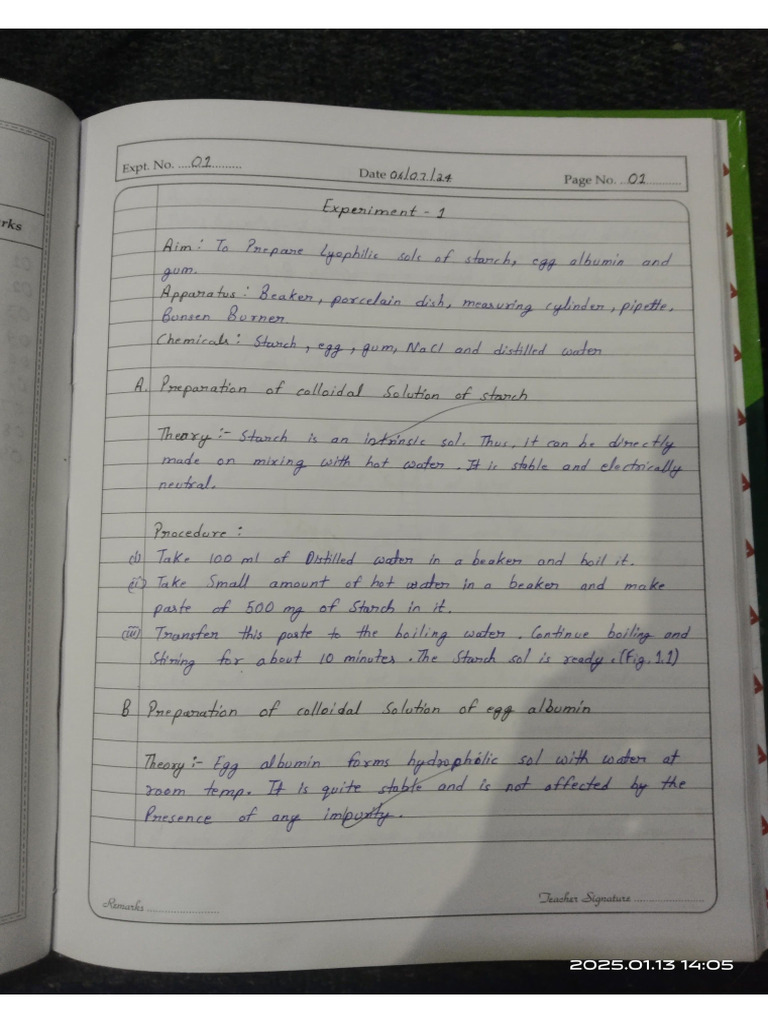 rks
Expt. No. ....01.........
Date 01/07/24
Page No. ..01...........
Experiment - 1
Aim : To Prepare lyophilic sols of starch, egg albumin and
gum.
Apparatus : Beaker, porcelain dish, measuring cylinder, pipette,
Bunsen Burner.
Chemicals : Starch, egg, gum, NaCl and distilled water
A. Preparation of colloidal Solution of starch
Theory :- Starch is an intrinsic sol. Thus, it can be directly
made on mixing with hot water. It is stable and electrically
neutral.
Procedure :
(i) Take 100 ml of Distilled water in a beaker and boil it.
(ii) Take Small amount of hot water in a beaker and make
paste of 500 mg of Starch in it.
(iii) Transfer this paste to the boiling water. Continue boiling and
Stiring for about 10 minutes. The Starch sol is ready. (Fig. 1.1)
B Preparation of colloidal Solution of egg albumin
Theory :- Egg albumin forms hydrophilic sol with water at
room temp. It is quite stable and is not affected by the
Presence of any impurity.
Remarks ....................
Teacher Signature ....................
2025.01.13 14:05